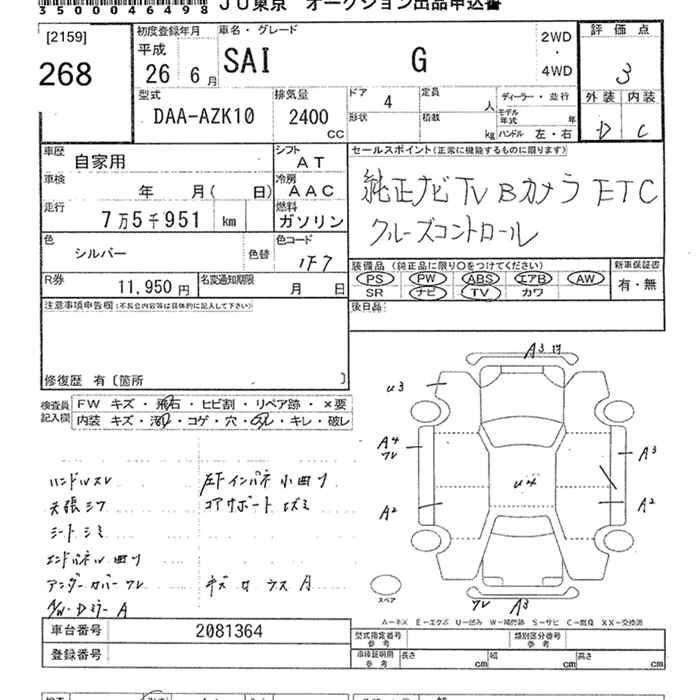 3500046498 JU東京 オークション出品申込書
[2159]
268
初度登録年月
平成
26 年 6 月
車名・グレード
SAI G
2WD
・
4WD
評価点
3
外装 内装
D C
型式
DAA-AZK10
排気量
2400
CC
ドア 4
形状
定員 人
積載 kg
ディーラー・並行
モデル年式 年
ハンドル 左・右
車歴 自家用
シフト AT
車検 年 月( 日)
冷房 AAC
走行 7万5千951 km
燃料 ガソリン
色 シルバー
色替
色コード 1F7
R券 11,950 円
名変通知期限 月 日
セールスポイント(正常に機能するものに限ります)
純正ナビ TV Bカメラ ETC
クルーズコントロール
装備品(純正品に限り○をつけてください)
PS PW ABS エアB AW
SR ナビ TV カワ
新車保証書
有・無
後日品
注意事項申告欄(不具合内容等は具体的に記入して下さい)
修復歴 有〔箇所 〕
検査員記入欄
FW キズ・飛石・ヒビ割・リペア跡・×要
内装 キズ・汚れ・コゲ・穴・スレ・キレ・破レ
ハンドルスレ
天張シワ
シートシミ
エンドパネル凹リ
アンダーカバーワレ
A/W・Dミラー A
左下インパネ 小凹リ
コアサポート ユガミ
キズ サラス A
A3
U3
A4
ワレ
A3
U4
A2
A2
ワレ A3
スペア
A－キズ E－エクボ U－凹み W－補修跡 S－サビ C－腐食 XX－交換済
車台番号 2081364
登録番号
型式指定番号
参考
類別区分番号
参考
車庫証明用
参考
長さ cm
幅 cm
高さ cm